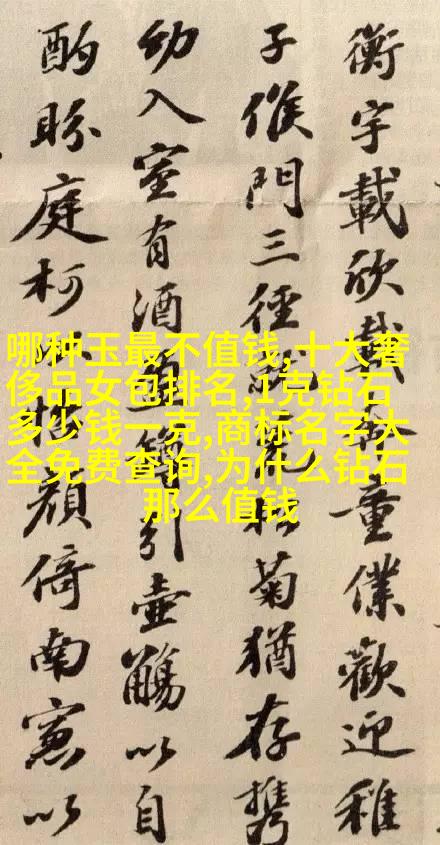 衡宇載欣載奔童僕歡迎稚
子候門三徑就荒松菊猶存攜
幼入室有酒盈罇引壺觴以自
酌眄庭柯以怡顏倚南窻以
哪种玉最不值钱,十大奢
侈品女包排名,1克钻石
多少钱一克,商标名字大
全免费查询,为什么钻石
那么值钱